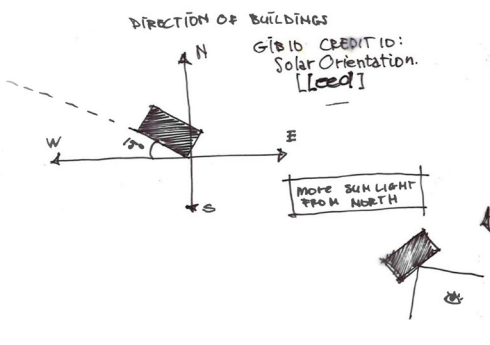 DIRECTION OF BUILDINGS
GIB10 CREDIT10:
Solar Orientation.
[Leed]
N
W
E
15°
S
MORE SUNLIGHT
FROM NORTH